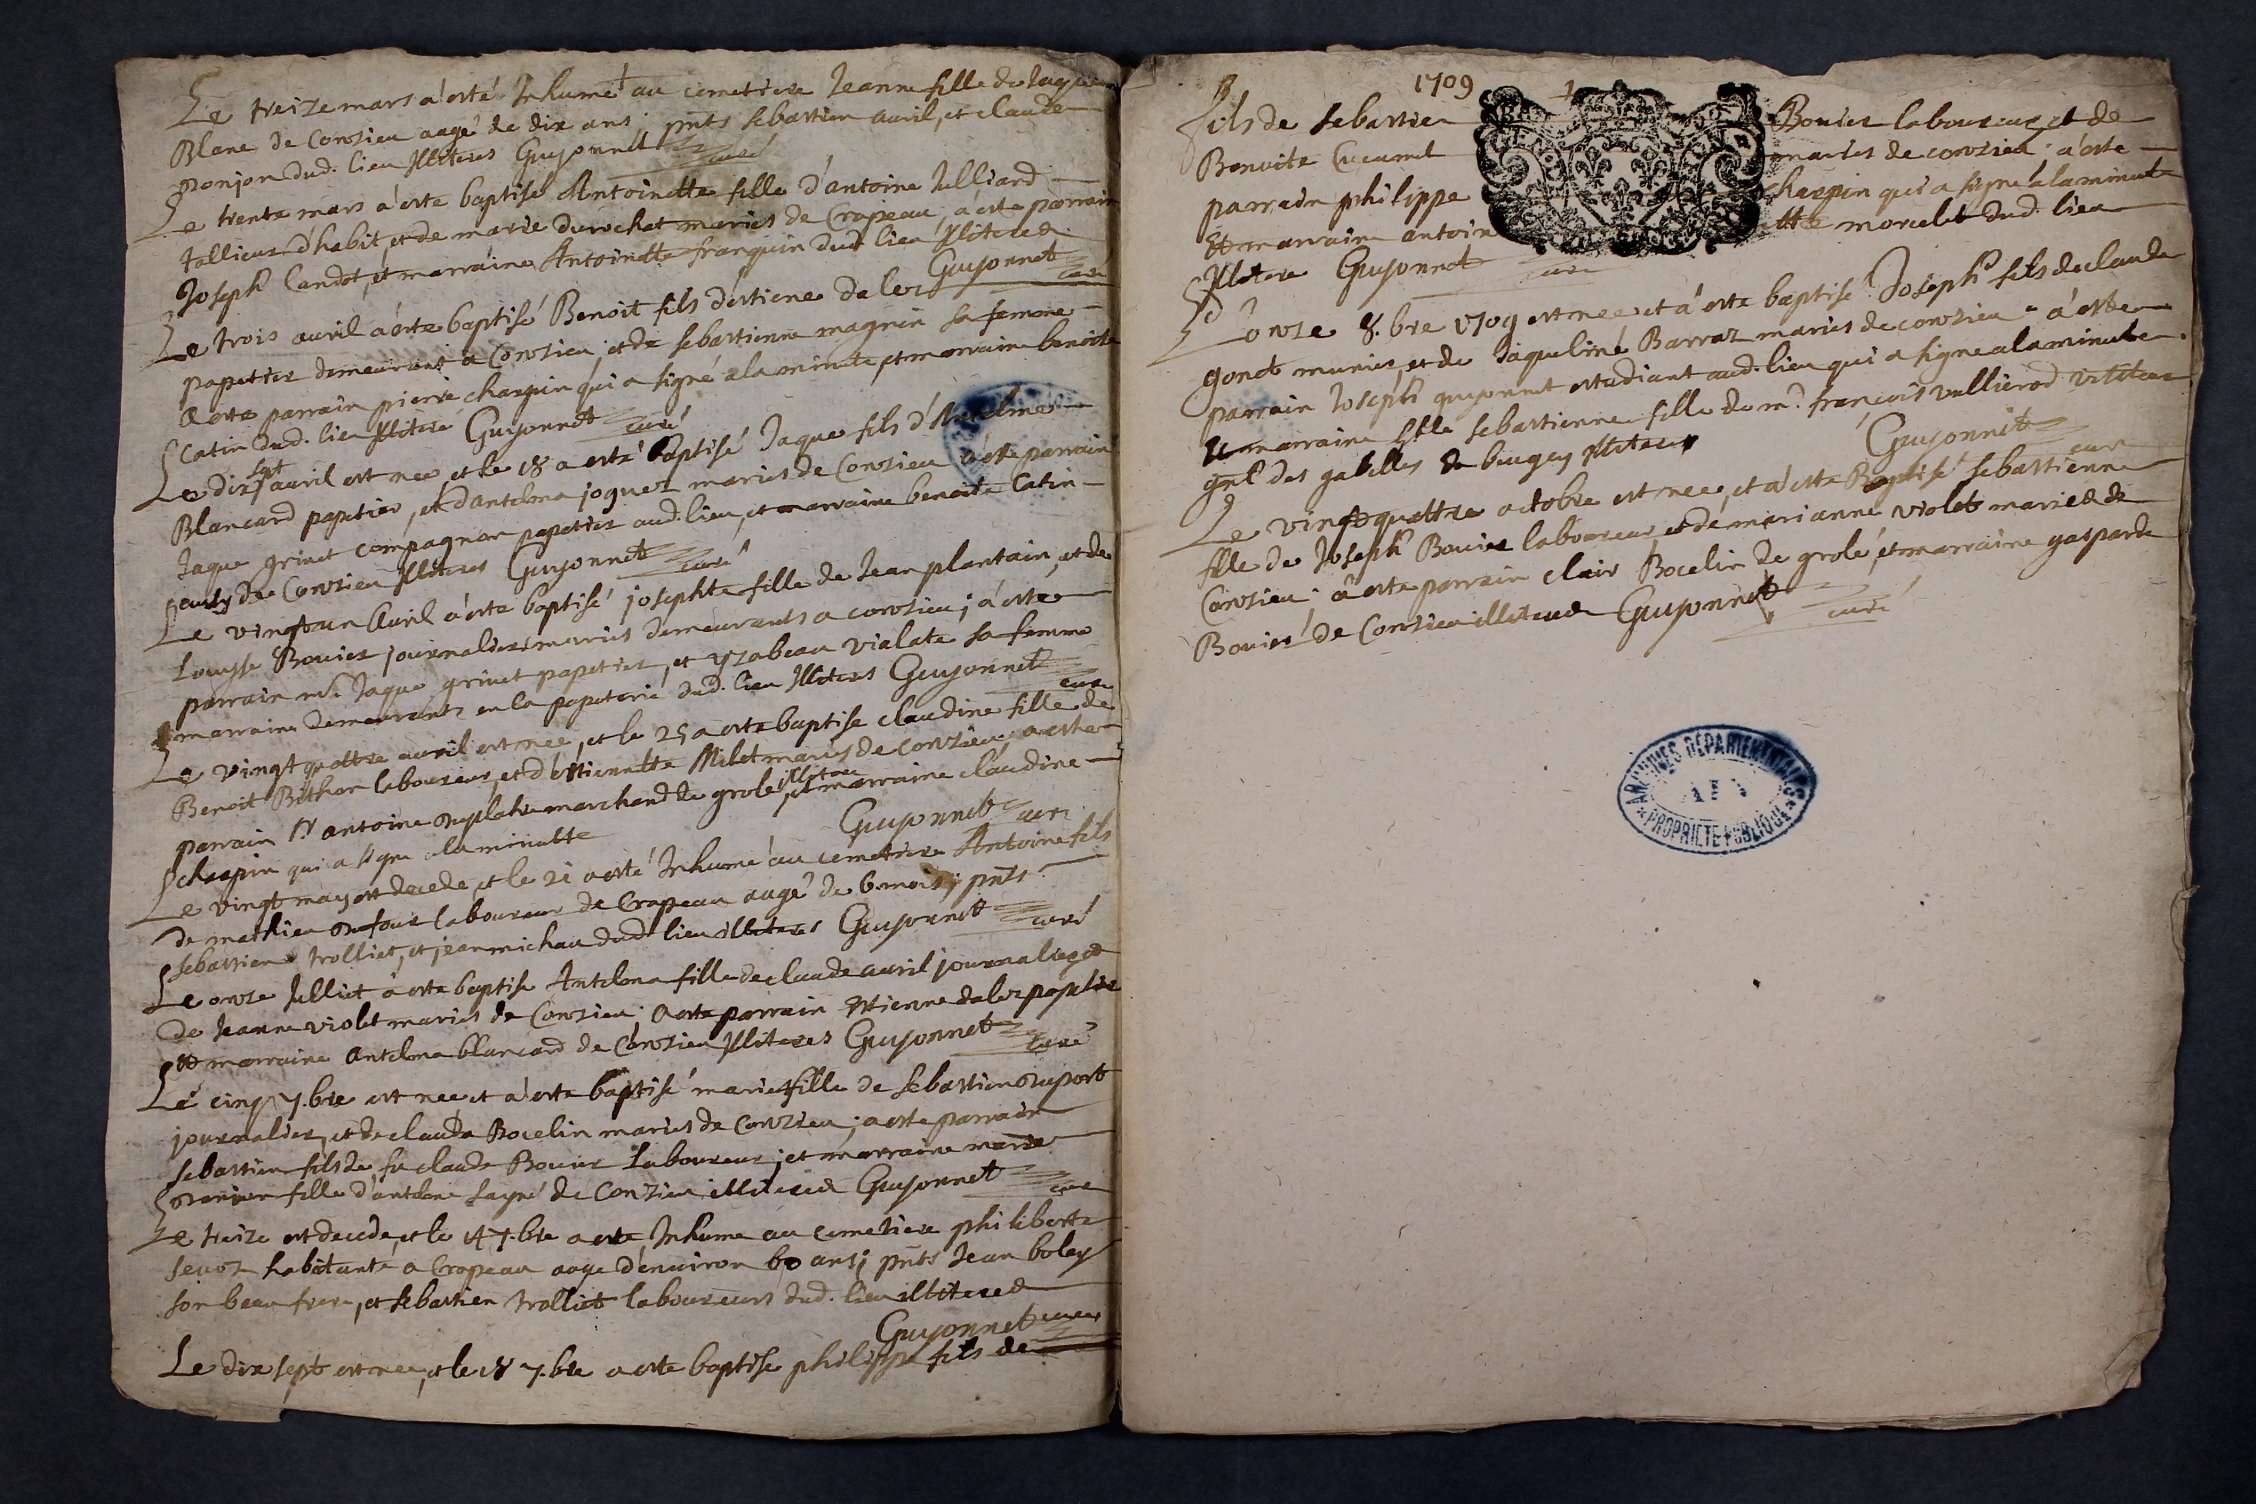 Le treize mars a esté Inhumé au cemetiere Jeanne fille de Jaque
Blanc de Conzieu aagé de dix ans; pnts sebastien auril, et claude
ponjon dud. lieu Illiteres Guyonnet curé
Le trente mars a este baptisé Antoinette fille d'antoine Julliard
tallieur d'habit, et de marie durochat mariés de Crapeau, a este parrain
Joseph Candot, et marraine Antoinette franquin dud. lieu Illiteres
Guyonnet curé
Le trois auril a este baptisé Benoit fils d'estiene daler
papetier demeurant a Conzieu, et de sebastienne magnin sa femme
a este parrain pierre charpin qui a signé a la minute et marraine benoite
Catin dud. lieu Illiteré Guyonnet curé
Le dix sept auril est nee, et le 18 a esté baptisé Jaque fils d'Anselme
Blancard papetier, et d'antelma joguet mariés de Conzieu a este parrain
Jaque griuet compagnon papetier aud. lieu, et marraine benoite Catin
de Conzieu Illiteres Guyonnet curé
Le vingt un Auril a este baptisé josephte fille de Jean plantain, et de
Louysse Bouier journalier mariés demeurants a conzieu; a esté
parrain mr. Jaque griuet papetier, et ysabeau vialate sa femme
marraine demeurants en la papeterie dud. lieu Illiteres Guyonnet curé
Le vingt quattre auril est nee, et le 25 a este baptise claudine fille de
Benoit Bithon laboureur, et d'estiennette Milet mariés de conzieu, a este
parrain Sr antoine duplatre marchand de grolé, illiteré et marraine claudine
charpin qui a signe a la minutte Guyonnet curé
Le vingt may est decede, et le 21 a esté Inhumé au cemetiere Antoine fils
de mathieu dufour laboureur de Crapeau aagé de 6. mois; pnts
sebastien trolliet, et jean michau dud. lieu illiteres Guyonnet curé
Le onze Julliet a este baptise Antelma fille de claude auril journalier, et
de Jeanne violet mariés de Conzieu. a este parrain estienne daler papetier
et marraine antelma blancard de Conzieu Illiteres Guyonnet curé
Le cinq 7.bre est nee et a este baptisé marie fille de sebastien duport
journalier, et de clauda Bocelin mariés de Conzieu; a este parrain
sebastien fils de fu claude Bouier laboureur, et marraine marie
fille d'antelme sagné de Conzieu illiteres Guyonnet curé
Le treize est decede, et le 14 7.bre a este Inhume au cemetiere philiberte
seuoz habitante a Crapeau aage d'enuiron 60 ans; pnts Jean boley
son beau frere, et sebastien trolliet laboureurs dud. lieu illiteres
Guyonnet curé
Le dix sept est nee, et le 18 7.bre a este baptise philippe fils de
1709
fils de sebastien Bouier laboureur et de
Benoite Cucumet mariés de conzieu; a este
parrain philippe charpin qui a signe a la minute
et marraine antoinette morcelet dud. lieu
Illitere Guyonnet curé
Le onze 8.bre 1709 est nee et a este baptisé Joseph fils de claude
gonet munier, et de Jaqueline Barraz mariés de conzieu a este
parrain Joseph guyonnet estudiant aud. lieu qui a signe a la minute
et marraine sebastienne fille de mr. françois vullierod visiteur
gnl des gabelles de bugey Illiteres Guyonnet curé
Le vingt quattre octobre est nee, et a este Baptise sebastienne
fille de Joseph Bouier laboureur, et de marianne violet mariés de
Conzieu. a este parrain clair Bocelin de grolé, et marraine gasparde
Bouier de Conzieu illiteres Guyonnet curé
ARCHIVES DÉPARTEMENTALES
AIN
PROPRIÉTÉ PUBLIQUE